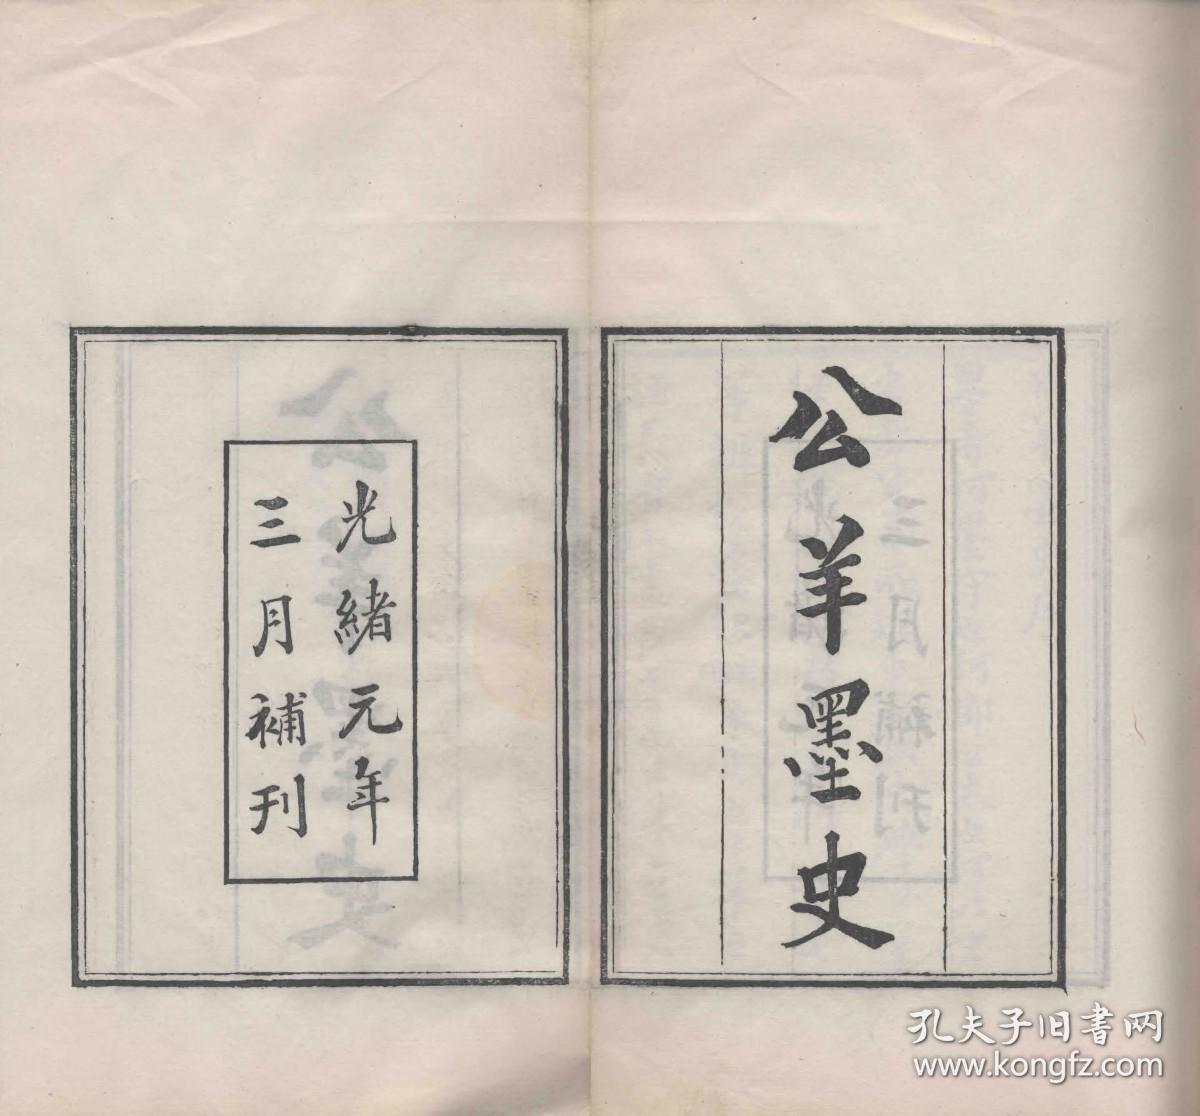 公羊墨史
光緒元年
三月補刊
孔夫子旧書网
www.kongfz.com